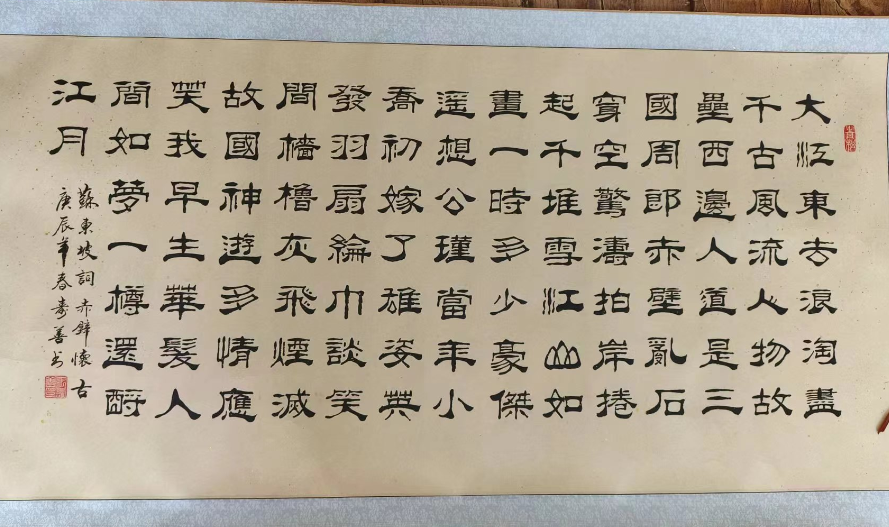 大江東去浪淘盡
千古風流人物故
壘西邊人道是三
國周郎赤壁亂石
穿空驚濤拍岸捲
起千堆雪江山如
畫一時多少豪傑
遥想公瑾當年小
喬初嫁了雄姿英
發羽扇綸巾談笑
間檣櫓灰飛煙滅
故國神遊多情應
笑我早生華髮人
間如夢一樽還酹
江月
蘇東坡詞赤壁懷古
庚辰年春壽善书